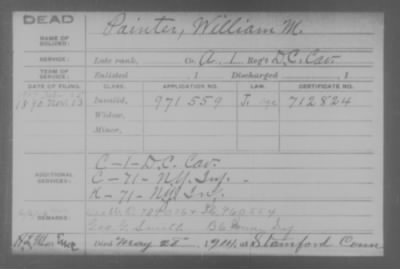 DEAD
NAME OF SOLDIER: Painter, William M.
SERVICE: Late rank, Co. A. 1. Reg't D.C. Cav.
TERM OF SERVICE: Enlisted , 1 Discharged , 1
DATE OF FILING. CLASS. APPLICATION NO. LAW. CERTIFICATE NO.
Invalid, 971559 712824
Widow,
Minor,
ADDITIONAL SERVICES:
C-1-D.C. Cav.
C-71-N.Y. Inf.
K-71-N.Y. Inf.
REMARKS:
Geo. G. Smith
Died May 1914, at Stamford Conn